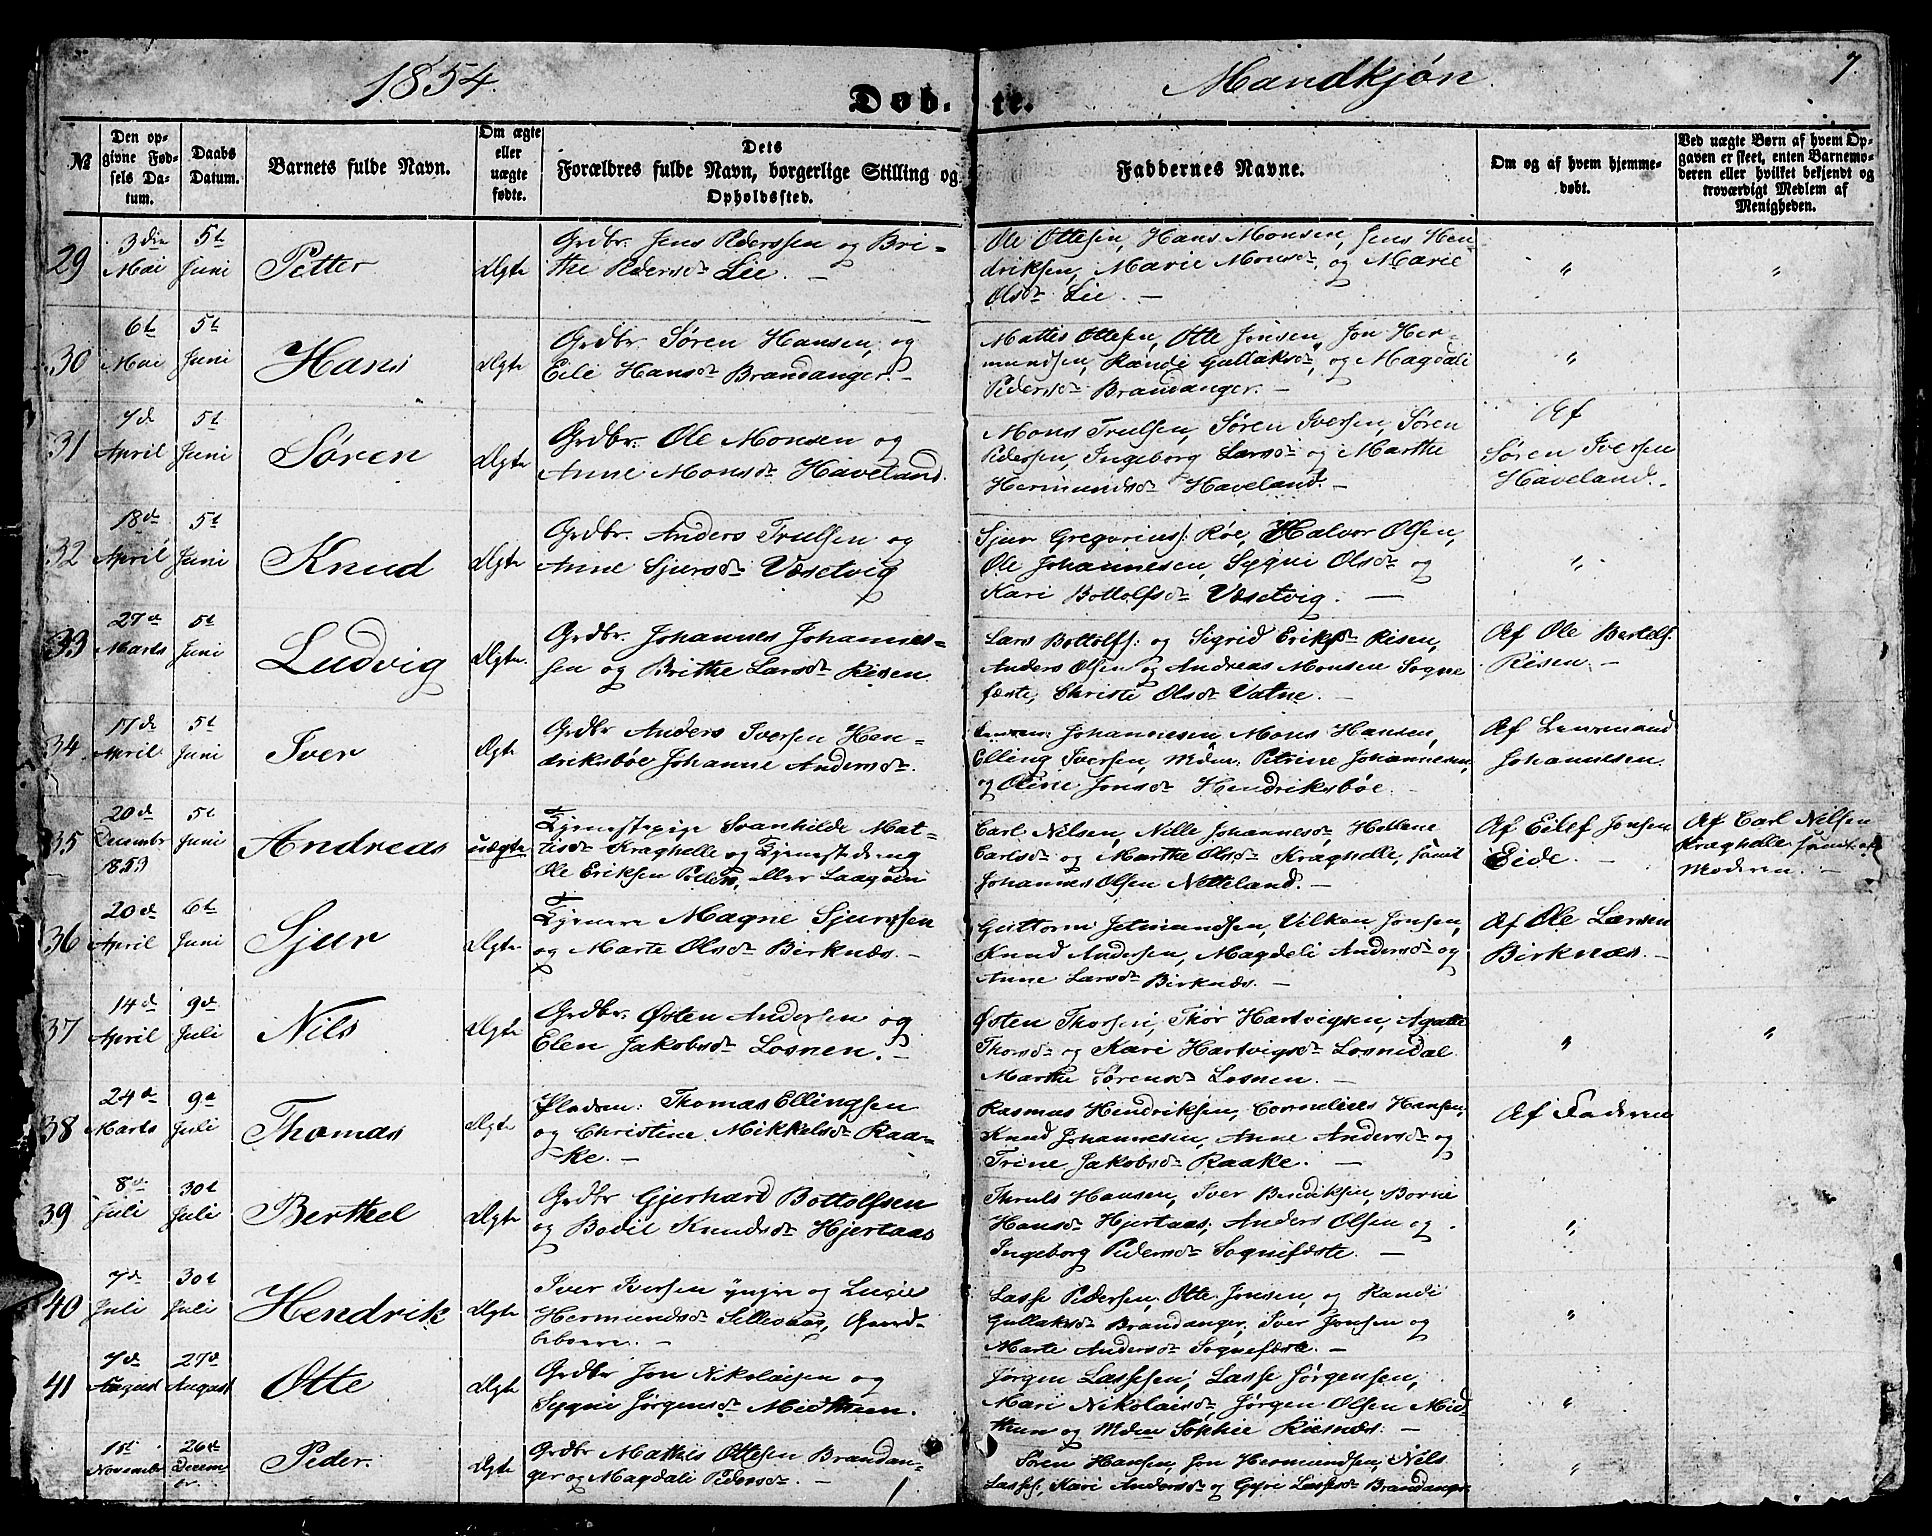 1854. Døb- te. Mandkjøn 7.
№ | Den opgivne Fødsels Datum. | Daabs Datum. | Barnets fulde Navn. | Om ægte eller uægte fødte. | Dets Forældres fulde Navn, borgerlige Stilling og Opholdssted. | Faddernes Navne. | Om og af hvem hjemmedøbt. | Ved uægte Børn af hvem Opgaven er skeet, enten Barnemoderen eller hvilket bekjendt og troværdigt Medlem af Menigheden.
29 3die Mai 5t Juni Petter Ægte
Grdbr. Jens Pederssen og Bri-
the Pedersdr Lie. —
Ole Ottesen, Hans Monsen, Jens Hen-
driksen, Marie Monsdr, og Marie
Olsdr Lie. —
" "
30 6t Mai 5t Juni Hans Ægte
Grdbr. Søren Hansen, og
Eili Hansdr Brandanger. —
Mattis Ottesen, Otte Jonsen, Jon Her-
mundsen, Randi Gullaksdr, og Magdali
Pedersdr Brandanger. —
"
31 7d April 5t Juni Søren Ægte
Grdbr. Ole Monsen og
Anne Monsdr Haveland.
Mons Trulsen, Søren Iversen, Søren
Pedersen, Ingeborg Larsdr og Marthe
Hermundsdr Haveland. —
Af
Søren Iversen
Haveland.
32 18d April 5t Juni Knud Ægte
Grdbr. Anders Trulsen og
Anne Sjursdr Væsetvig
Sjur Gregorius: Røe, Halvor Olsen,
Ole Johannesen, Sygni Olsdr og
Kari Bottolfsdr Væsetvig. —
"
33 27d Marts 5t Juni Ludvig Ægte.
Grdbr. Johannes Johannes-
sen og Brithe Larsdr Risen.
Lars Bottolfs: og Sigrid Eriksdr Risen,
Anders Olsen og Andreas Monsen Sogne
fæste, Christi Olsdr Vatne. —
Af Ole Bertels:
Risen. —
34 17d April 5t Juni Iver Ægte
Grdbr Anders Iversen Hen-
driksbøe Johanne Andersdr.
Johannesen, Mons Hansen,
Elling Iversen, Mdm: Petrine Johannesen,
og Oline Jonsdr Hendriksbøe. —
Af Leurmand
Johannesen.
35 20d Decembr 1853 5t Juni Andreas uægte
Tjenestepige Svanhilde Mat-
tisdr Kraghelle og Tjenestedreng
Ole Eriksen eller
Carl Nilsen, Nille Johannesdr, Hellene
Carlsdr og Marthe Olsdr Kraghelle, samt
Johannes Olsen Nitteland. —
Af Eilef Jonsen
Eide. —
Af Carl Nilsen
Kraghelle samt af
Moderen. —
36 20d April 6t Juni Sjur Ægte
Tjenere Magne Sjurssen
og Marte Olsdr Birknæs. —
Guttorm Jetmundsen, Vilken Jonsen,
Knud Andersen, Magdeli Andersdr og
Anne Larsdr Birknæs. —
Af Ole Larsen
Birknæs. —
37 14d April 9d Juli Nils Ægte
Grdbr. Østen Andersen og
Elen Jakobsdr Losnen. —
Østen Thorsen, Thor Hartvigsen, Agathe
Thorsdr og Kari Hartvigsdr Losnedal
Marthe Sørensdr Losnen. —
" "
38 24d Marts 9d Juli Thomas Ægte
Pladsm: Thomas Ellingsen
og Christine Mikkelsdr Raa-
ke. —
Rasmus Hendriksen, Cornelius Hansen,
Knud Johannesen, Anne Andersdr og
Trine Jakobsdr Raake. —
Af Faderen
39 8d Juli 30t Juli Berthel Ægte
Grdbr Gjerhard Bottolfsen
og Bodil Knudsdr Hjertaas
Thruls Hansen, Iver Bendiksen, Borni
Hansdr Hjertaas, Anders Olsen og
Ingeborg Pedersdr Sognefæste. —
"
40 7d Juli 30t Juli Hendrik Ægte
Iver Iversen yngre og Lucie
Hermundsdr Sellevaag, Gaard-
beboere. —
Lasse Pedersen, Otte Jonsen, og Randi
Gullaksdr Brandanger, Iver Jonsen og
Marte Andersdr Sognefæste. —
"
41 7d August 27d August Otte Ægte
Grdbr Jon Nikolaisen og
Sygni Jørgensdr Midthun.
Jørgen Lassesen, Lasse Jørgensen,
Mari Nikolaisdr, Jørgen Olsen Mid-
thun og Mdm Sophie Risnæs. —
"
1st November 26d Decembr. Peder. Ægte
Grdbr Mathis Ottesen Brandan-
ger og Magdali Pedersdr. —
Søren Hansen, Jon Hermundsen, Nils
Lasses:, Kari Andersdr og Gyri Lassesdr Brandanger
"